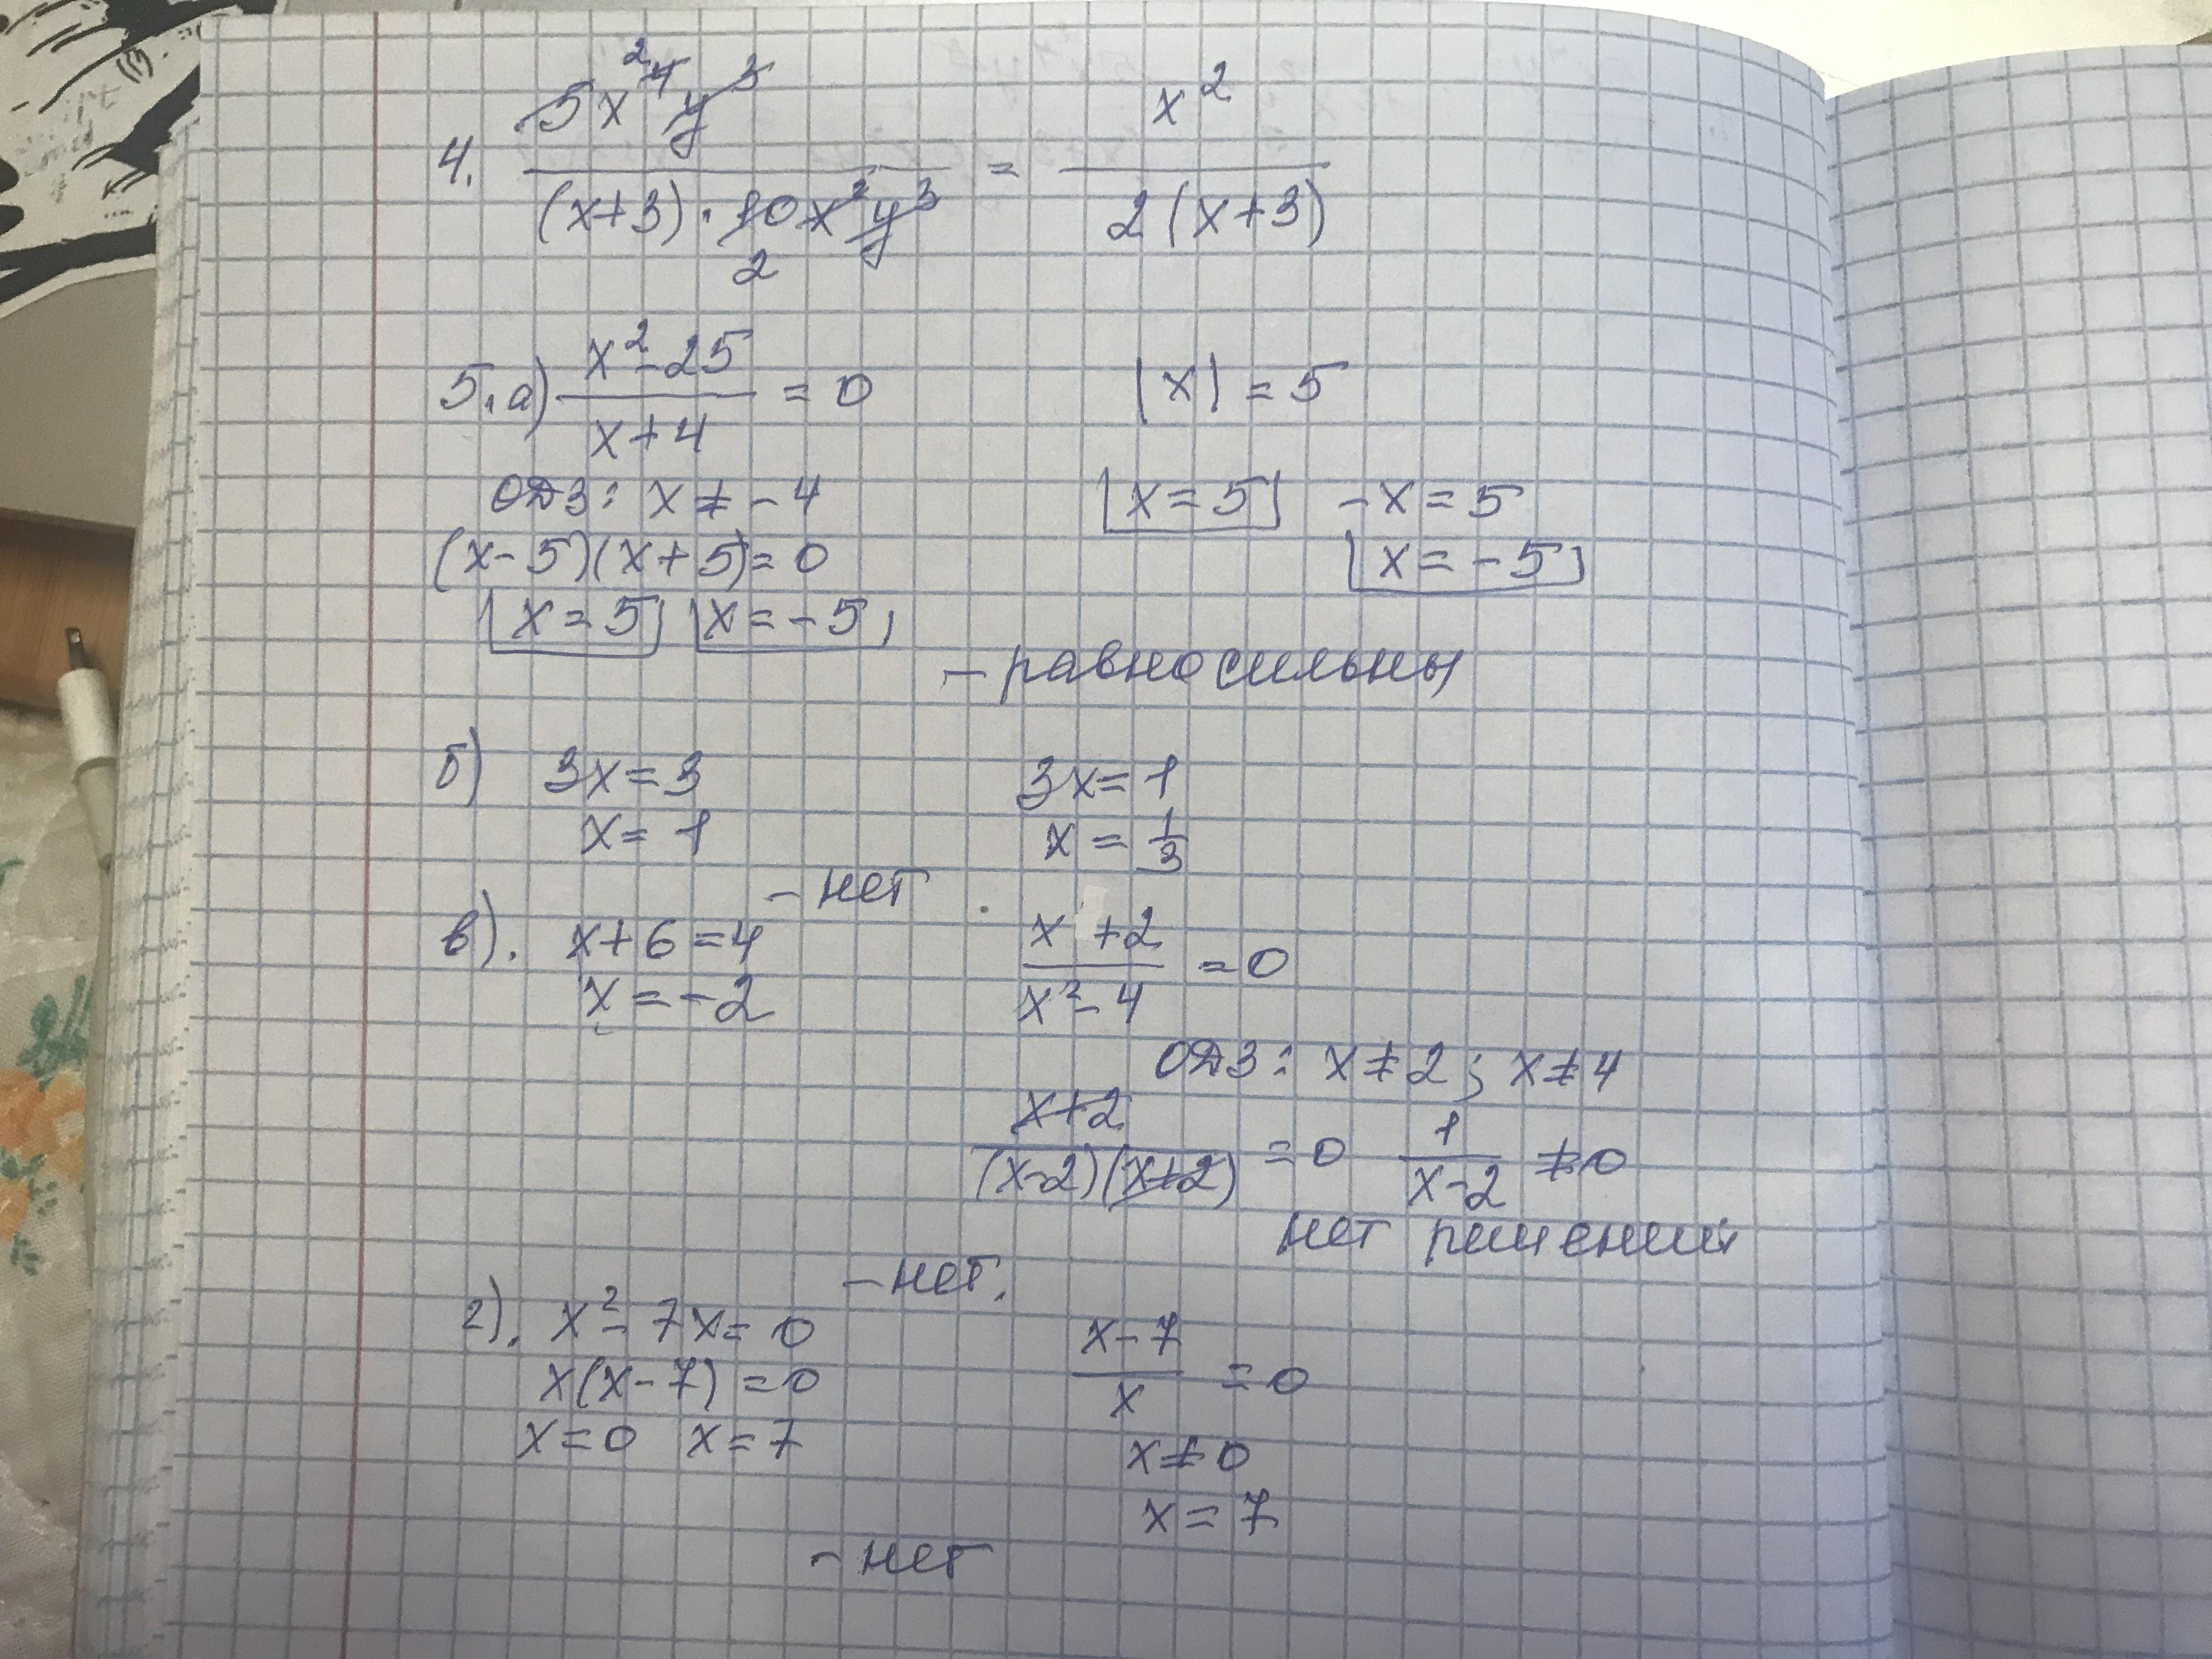 4. 5x⁴²y³ / (x+3) · 10x²y³ 2 = x² / 2(x+3)
5. а) x²-25 / x+4 = 0    |x| = 5
ОДЗ: x ≠ -4    x = 5    -x = 5
(x-5)(x+5) = 0    x = -5
x = 5    x = -5
- равносильны
б) 3x = 3    3x = 1
x = 1    x = 1/3
- нет
в). x+6 = 4    x+2 / x²-4 = 0
x = -2
ОДЗ: x ≠ 2; x ≠ 4
x+2 / (x-2)(x+2) = 0    1 / x-2 ≠ 0
нет решений
- нет.
г). x²-7x = 0    x-7 / x = 0
x(x-7) = 0
x = 0    x = 7    x ≠ 0
x = 7
- нет